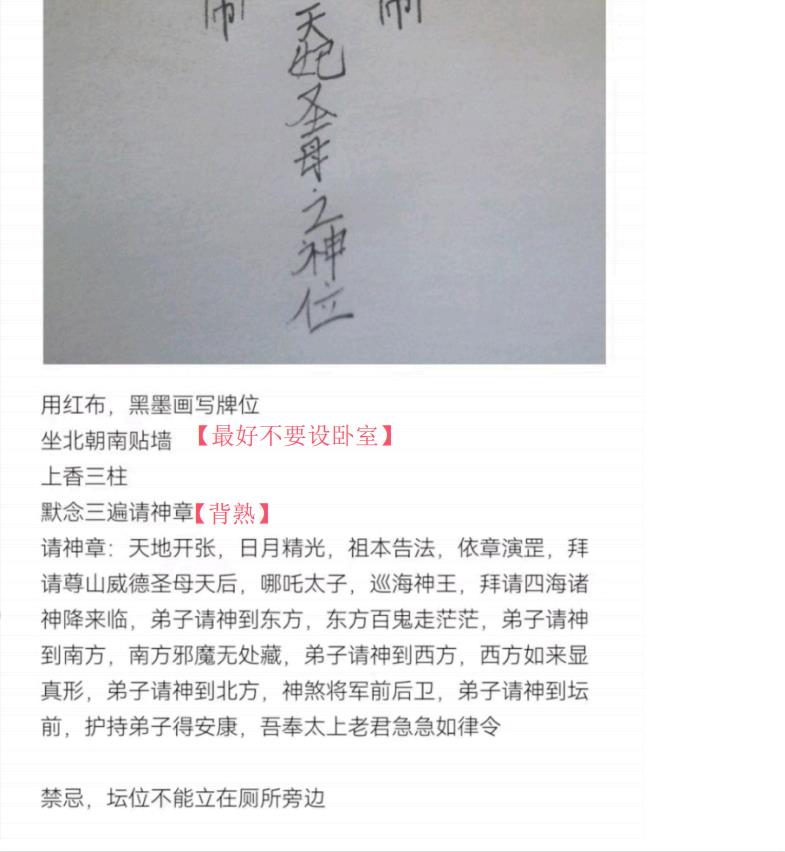 天妃圣母之神位
用红布，黑墨画写牌位
坐北朝南贴墙 【最好不要设卧室】
上香三柱
默念三遍请神章【背熟】
请神章：天地开张，日月精光，祖本告法，依章演罡，拜
请尊山威德圣母天后，哪吒太子，巡海神王，拜请四海诸
神降来临，弟子请神到东方，东方百鬼走茫茫，弟子请神
到南方，南方邪魔无处藏，弟子请神到西方，西方如来显
真形，弟子请神到北方，神煞将军前后卫，弟子请神到坛
前，护持弟子得安康，吾奉太上老君急急如律令
禁忌，坛位不能立在厕所旁边